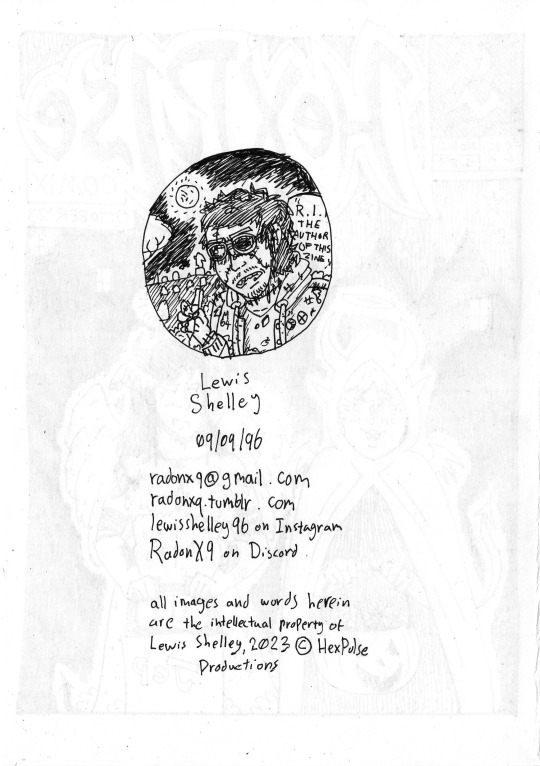 R.I.
THE
AUTHOR
OF THIS
ZINE
Lewis
Shelley
09/09/96
radonx9@gmail.com
radonxq.tumblr.com
lewisshelley96 on Instagram
RadonX9 on Discord
all images and words herein
are the intellectual property of
Lewis Shelley, 2023 © HexPulse
Productions